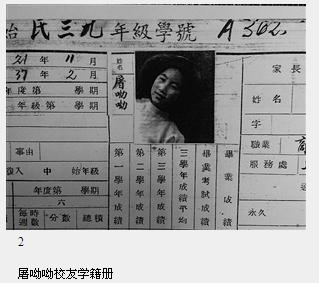 民三九年級學號 A302
21 年 11 月
37 年 2 月
年度第 學期
年級第 學期
姓名
屠呦呦
家長
姓名
字
職業
服務處
永久
事由
入 中 始年級
年度第 學期
六
每時週數
分數
總積
第一學年成績
第二學年成績
第三學年成績
三學年成績平均
畢業考試成績
畢業成績
2
屠呦呦校友学籍册